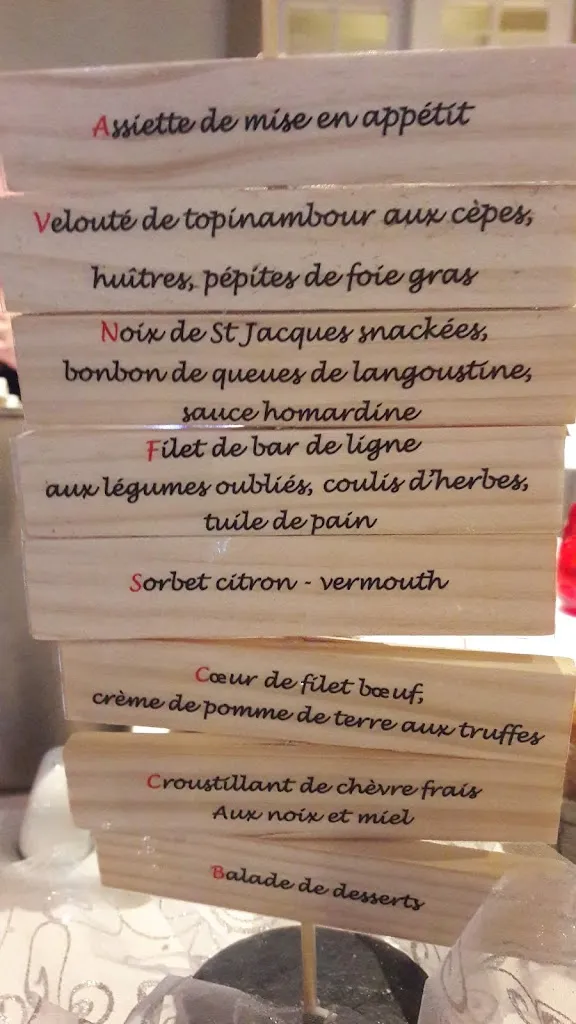 Assiette de mise en appétit
Velouté de topinambour aux cèpes,
huîtres, pépites de foie gras
Noix de St Jacques snackées,
bonbon de queues de langoustine,
sauce homardine
Filet de bar de ligne
aux légumes oubliés, coulis d'herbes,
tuile de pain
Sorbet citron - vermouth
Cœur de filet bœuf,
crème de pomme de terre aux truffes
Croustillant de chèvre frais
Aux noix et miel
Balade de desserts